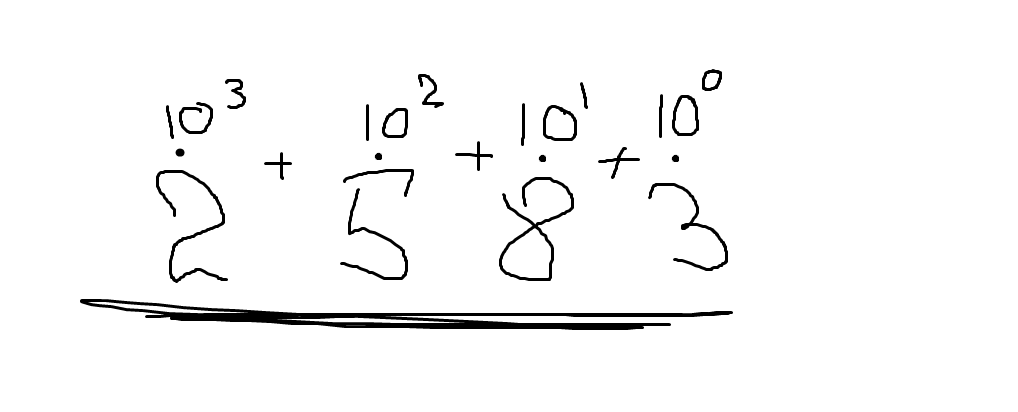 10³ + 10² + 10¹ + 10⁰
· · · ·
2 5 8 3